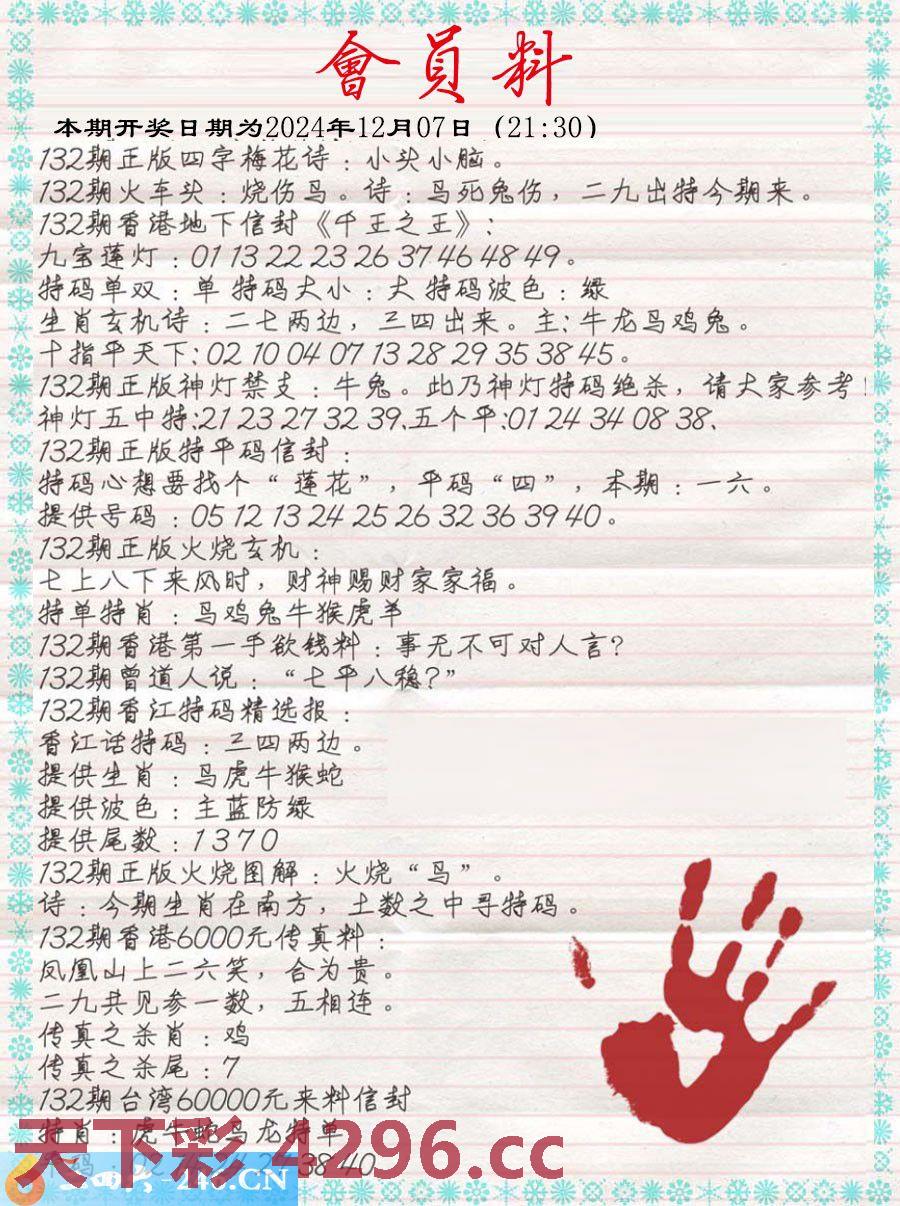 會員料
本期开奖日期为2024年12月07日（21:30）
132期正版四字梅花诗：小头小脑。
132期火车头：烧伤鸟。诗：鸟死兔伤，二九出特今期来。
132期香港地下信封《千王之王》：
九宝莲灯：01 13 22 23 26 37 46 48 49。
特码单双：单 特码大小：大 特码波色：绿
生肖玄机诗：二七两边，三四出来。主：牛龙鸟鸡兔。
十指平天下：02 10 04 07 13 28 29 35 38 45。
132期正版神灯禁支：牛兔。此乃神灯特码绝杀，请大家参考！
神灯五中特:21 23 27 32 39.五个平:01 24 34 08 38.
132期正版特平码信封：
特码心想要找个“莲花”，平码“四”，本期：一六。
提供号码：05 12 13 24 25 26 32 36 39 40。
132期正版火烧玄机：
七上八下来风时，财神赐财家家福。
特单特肖：鸟鸡兔牛猴虎羊
132期香港第一手欲钱料：事无不可对人言？
132期曾道人说：“七平八稳？”
132期香江特码精选报：
香江话特码：三四两边。
提供生肖：鸟虎牛猴蛇
提供波色：主蓝防绿
提供尾数：1 3 7 0
132期正版火烧图解：火烧“鸟”。
诗：今期生肖在南方，土数之中寻特码。
132期香港6000元传真料：
凤凰山上二六笑，合为贵。
二九共见参一数，五相连。
传真之杀肖：鸡
传真之杀尾：7
132期台湾60000元来料信封
特肖：虎牛蛇鸟龙特单
天下彩 4296.cc
38 40
246.CN